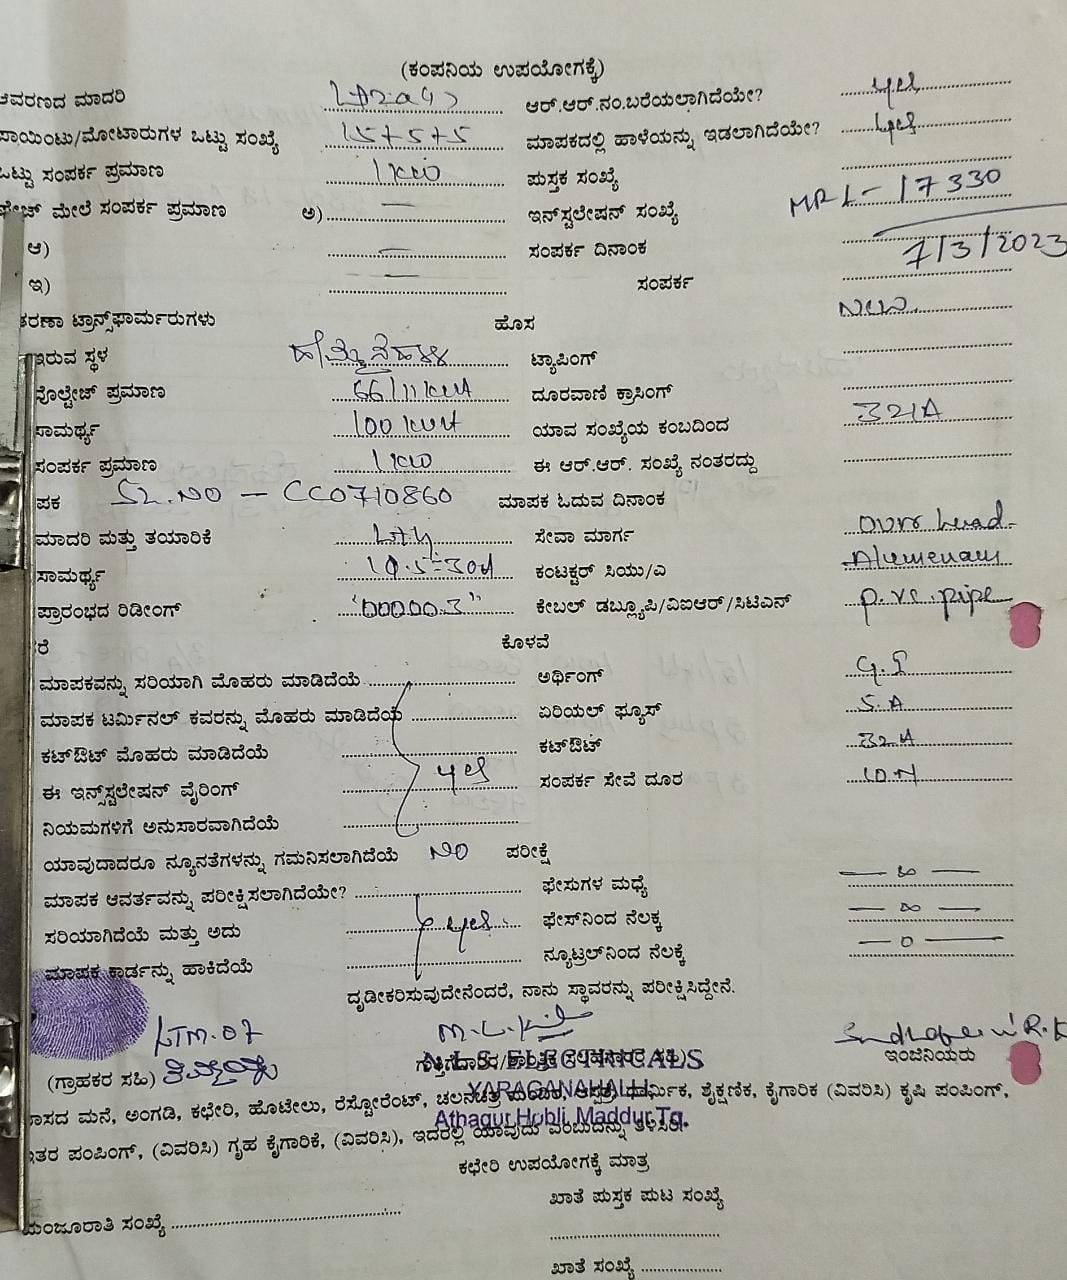 (ಕಂಪನಿಯ ಉಪಯೋಗಕ್ಕೆ)
ಆವರಣದ ಮಾದರಿ ಆರ್.ಆರ್.ನಂ.ಬರೆಯಲಾಗಿದೆಯೇ? yes
ಪಾಯಿಂಟು/ಮೋಟಾರುಗಳ ಒಟ್ಟು ಸಂಖ್ಯೆ 15+5+5 ಮಾಪಕದಲ್ಲಿ ಹಾಳೆಯನ್ನು ಇಡಲಾಗಿದೆಯೇ? yes
ಒಟ್ಟು ಸಂಪರ್ಕ ಪ್ರಮಾಣ 1 KW ಪುಸ್ತಕ ಸಂಖ್ಯೆ
ಫೇಜ್ ಮೇಲೆ ಸಂಪರ್ಕ ಪ್ರಮಾಣ ಅ) — ಇನ್‌ಸ್ಟಲೇಷನ್ ಸಂಖ್ಯೆ MRL-17330
ಆ) — ಸಂಪರ್ಕ ದಿನಾಂಕ 7/3/2023
ಇ) — ಸಂಪರ್ಕ
ತರಣಾ ಟ್ರಾನ್ಸ್‌ಫಾರ್ಮರುಗಳು ಹೊಸ New
ಇರುವ ಸ್ಥಳ ಟ್ಯಾಪಿಂಗ್
ವೋಲ್ಟೇಜ್ ಪ್ರಮಾಣ 66/11 KVA ದೂರವಾಣಿ ಕ್ರಾಸಿಂಗ್
ಸಾಮರ್ಥ್ಯ 100 KVA ಯಾವ ಸಂಖ್ಯೆಯ ಕಂಬದಿಂದ 321A
ಸಂಪರ್ಕ ಪ್ರಮಾಣ 1 KW ಈ ಆರ್.ಆರ್. ಸಂಖ್ಯೆ ನಂತರದ್ದು
ಪಕ SL.NO - CC0710860 ಮಾಪಕ ಓದುವ ದಿನಾಂಕ
ಮಾದರಿ ಮತ್ತು ತಯಾರಿಕೆ ಸೇವಾ ಮಾರ್ಗ Over head
ಸಾಮರ್ಥ್ಯ 10.5-30A ಕಂಟಕ್ಟರ್ ಸಿಯು/ಎ Alumenam
ಪ್ರಾರಂಭದ ರಿಡೀಂಗ್ "00000.3" ಕೇಬಲ್ ಡಬ್ಲ್ಯೂಪಿ/ವಿಐಆರ್/ಸಿಟಿಎಸ್ P.vc.pipe
ರೆ ಕೊಳವೆ
ಮಾಪಕವನ್ನು ಸರಿಯಾಗಿ ಮೊಹರು ಮಾಡಿದೆಯೆ ಅರ್ಥಿಂಗ್ G.I
ಮಾಪಕ ಟರ್ಮಿನಲ್ ಕವರನ್ನು ಮೊಹರು ಮಾಡಿದೆಯೆ ಏರಿಯಲ್ ಫ್ಯೂಸ್ 5.A
ಕಟ್‌ಔಟ್ ಮೊಹರು ಮಾಡಿದೆಯೆ ಕಟ್‌ಔಟ್ 32.A
ಈ ಇನ್ಸ್‌ಸ್ಟಲೇಷನ್ ವೈರಿಂಗ್ yes ಸಂಪರ್ಕ ಸೇವೆ ದೂರ 10.M
ನಿಯಮಗಳಿಗೆ ಅನುಸಾರವಾಗಿದೆಯೆ
ಯಾವುದಾದರೂ ನ್ಯೂನತೆಗಳನ್ನು ಗಮನಿಸಲಾಗಿದೆಯೆ NO ಪರೀಕ್ಷೆ
ಮಾಪಕ ಆವರ್ತವನ್ನು ಪರೀಕ್ಷಿಸಲಾಗಿದೆಯೇ? ಫೇಸುಗಳ ಮಧ್ಯೆ — ∞ —
ಸರಿಯಾಗಿದೆಯೆ ಮತ್ತು ಅದು yes ಫೇಸ್‌ನಿಂದ ನೆಲಕ್ಕೆ — ∞ —
ಮಾಪಕ ಕಾರ್ಡನ್ನು ಹಾಕಿದೆಯೆ ನ್ಯೂಟ್ರಲ್‌ನಿಂದ ನೆಲಕ್ಕೆ — 0 —
ದೃಡೀಕರಿಸುವುದೇನೆಂದರೆ, ನಾನು ಸ್ಥಾವರನ್ನು ಪರೀಕ್ಷಿಸಿದ್ದೇನೆ.
LTM.07
(ಗ್ರಾಹಕರ ಸಹಿ) N.L.S. ELECTRICALS ಇಂಜಿನಿಯರು
YARAGANAHALLI,
Athagur Hobli, Maddur Tq.
ವಾಸದ ಮನೆ, ಅಂಗಡಿ, ಕಛೇರಿ, ಹೊಟೇಲು, ರೆಸ್ಟೋರೆಂಟ್, ಚಲನಚಿತ್ರ ಮಂದಿರ, ಆಸ್ಪತ್ರೆ, ಧಾರ್ಮಿಕ, ಶೈಕ್ಷಣಿಕ, ಕೈಗಾರಿಕ (ವಿವರಿಸಿ) ಕೃಷಿ ಪಂಪಿಂಗ್,
ಇತರ ಪಂಪಿಂಗ್, (ವಿವರಿಸಿ) ಗೃಹ ಕೈಗಾರಿಕೆ, (ವಿವರಿಸಿ), ಇದರಲ್ಲಿ ಯಾವುದು ಎಂಬುದನ್ನು ತಿಳಿಸಿರಿ
ಕಛೇರಿ ಉಪಯೋಗಕ್ಕೆ ಮಾತ್ರ
ಖಾತೆ ಪುಸ್ತಕ ಪುಟ ಸಂಖ್ಯೆ
ಮಂಜೂರಾತಿ ಸಂಖ್ಯೆ
ಖಾತೆ ಸಂಖ್ಯೆ